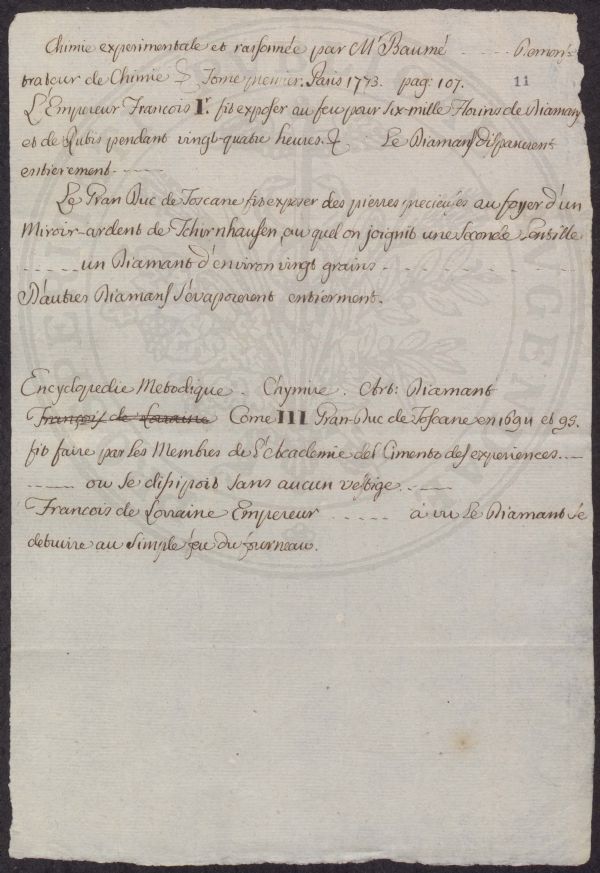 Chimie experimentale et raisonnée par Mr Baumé ..... Demons-
trateur de Chimie & Tome premier. Paris 1773. pag: 107.
11
L'Empereur François I.r fit exposer au feu pour six-mille Florins de Diamans
et de Rubis pendant vingt-quatre heures. & Le Diamans disparurent
entièrement .....
Le Gran Duc de Toscane fit exposer des pierres precieuses au foyer d'un
Miroir-ardent de Tchirnhausen, au quel on joignit une seconde Lentille
..... un Diamant d'environ vingt grains .....
D'autres Diamans s'évaporerent entierment.
Encyclopedie Metodique. Chymie. Art: Diamant
François de Loraine Come III Gran-Duc de Toscane en 1694 et 95.
fit faire par les Membres de l'Academie del Cimento des experiences .....
..... ou se disipoit sans aucun vestige .....
Francois de Lorraine Empereur ..... à vu le Diamant se
detruire au simple feu du fourneau.